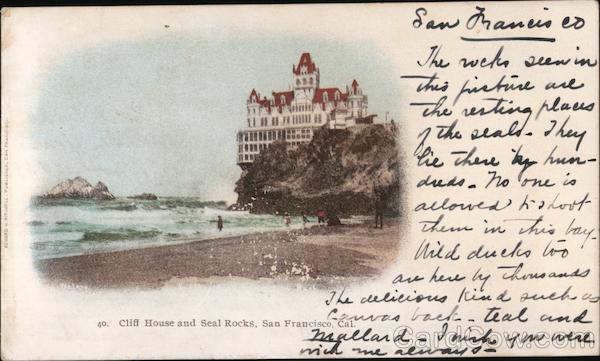 San Francisco
The rocks seen in
this picture are
the resting places
of the seals. They
lie there by hun-
dreds. No one is
allowed to shoot
them in this bay.
Wild ducks too
are here by thousands
The delicious kind such as
Canvas back - teal and
Mallard - I wish you were
with me always -
40. Cliff House and Seal Rocks, San Francisco, Cal.
EDWARD H. MITCHELL, PUBLISHER, SAN FRANCISCO.
CardCow.com